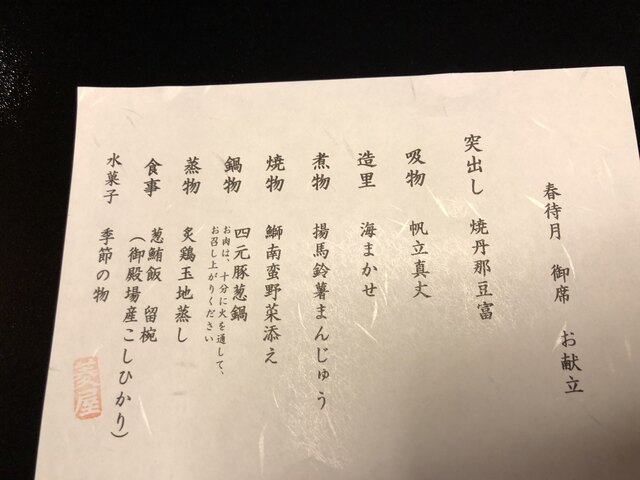 春待月 御席 お献立
突出し 焼丹那豆富
吸物 帆立真丈
造里 海まかせ
煮物 揚馬鈴薯まんじゅう
焼物 鰤南蛮野菜添え
鍋物 四元豚葱鍋
お肉は、十分に火を通して、
お召し上がりください
蒸物 炙鶏玉地蒸し
食事 葱鮪飯 留椀
(御殿場産こしひかり)
水菓子 季節の物
菱屋